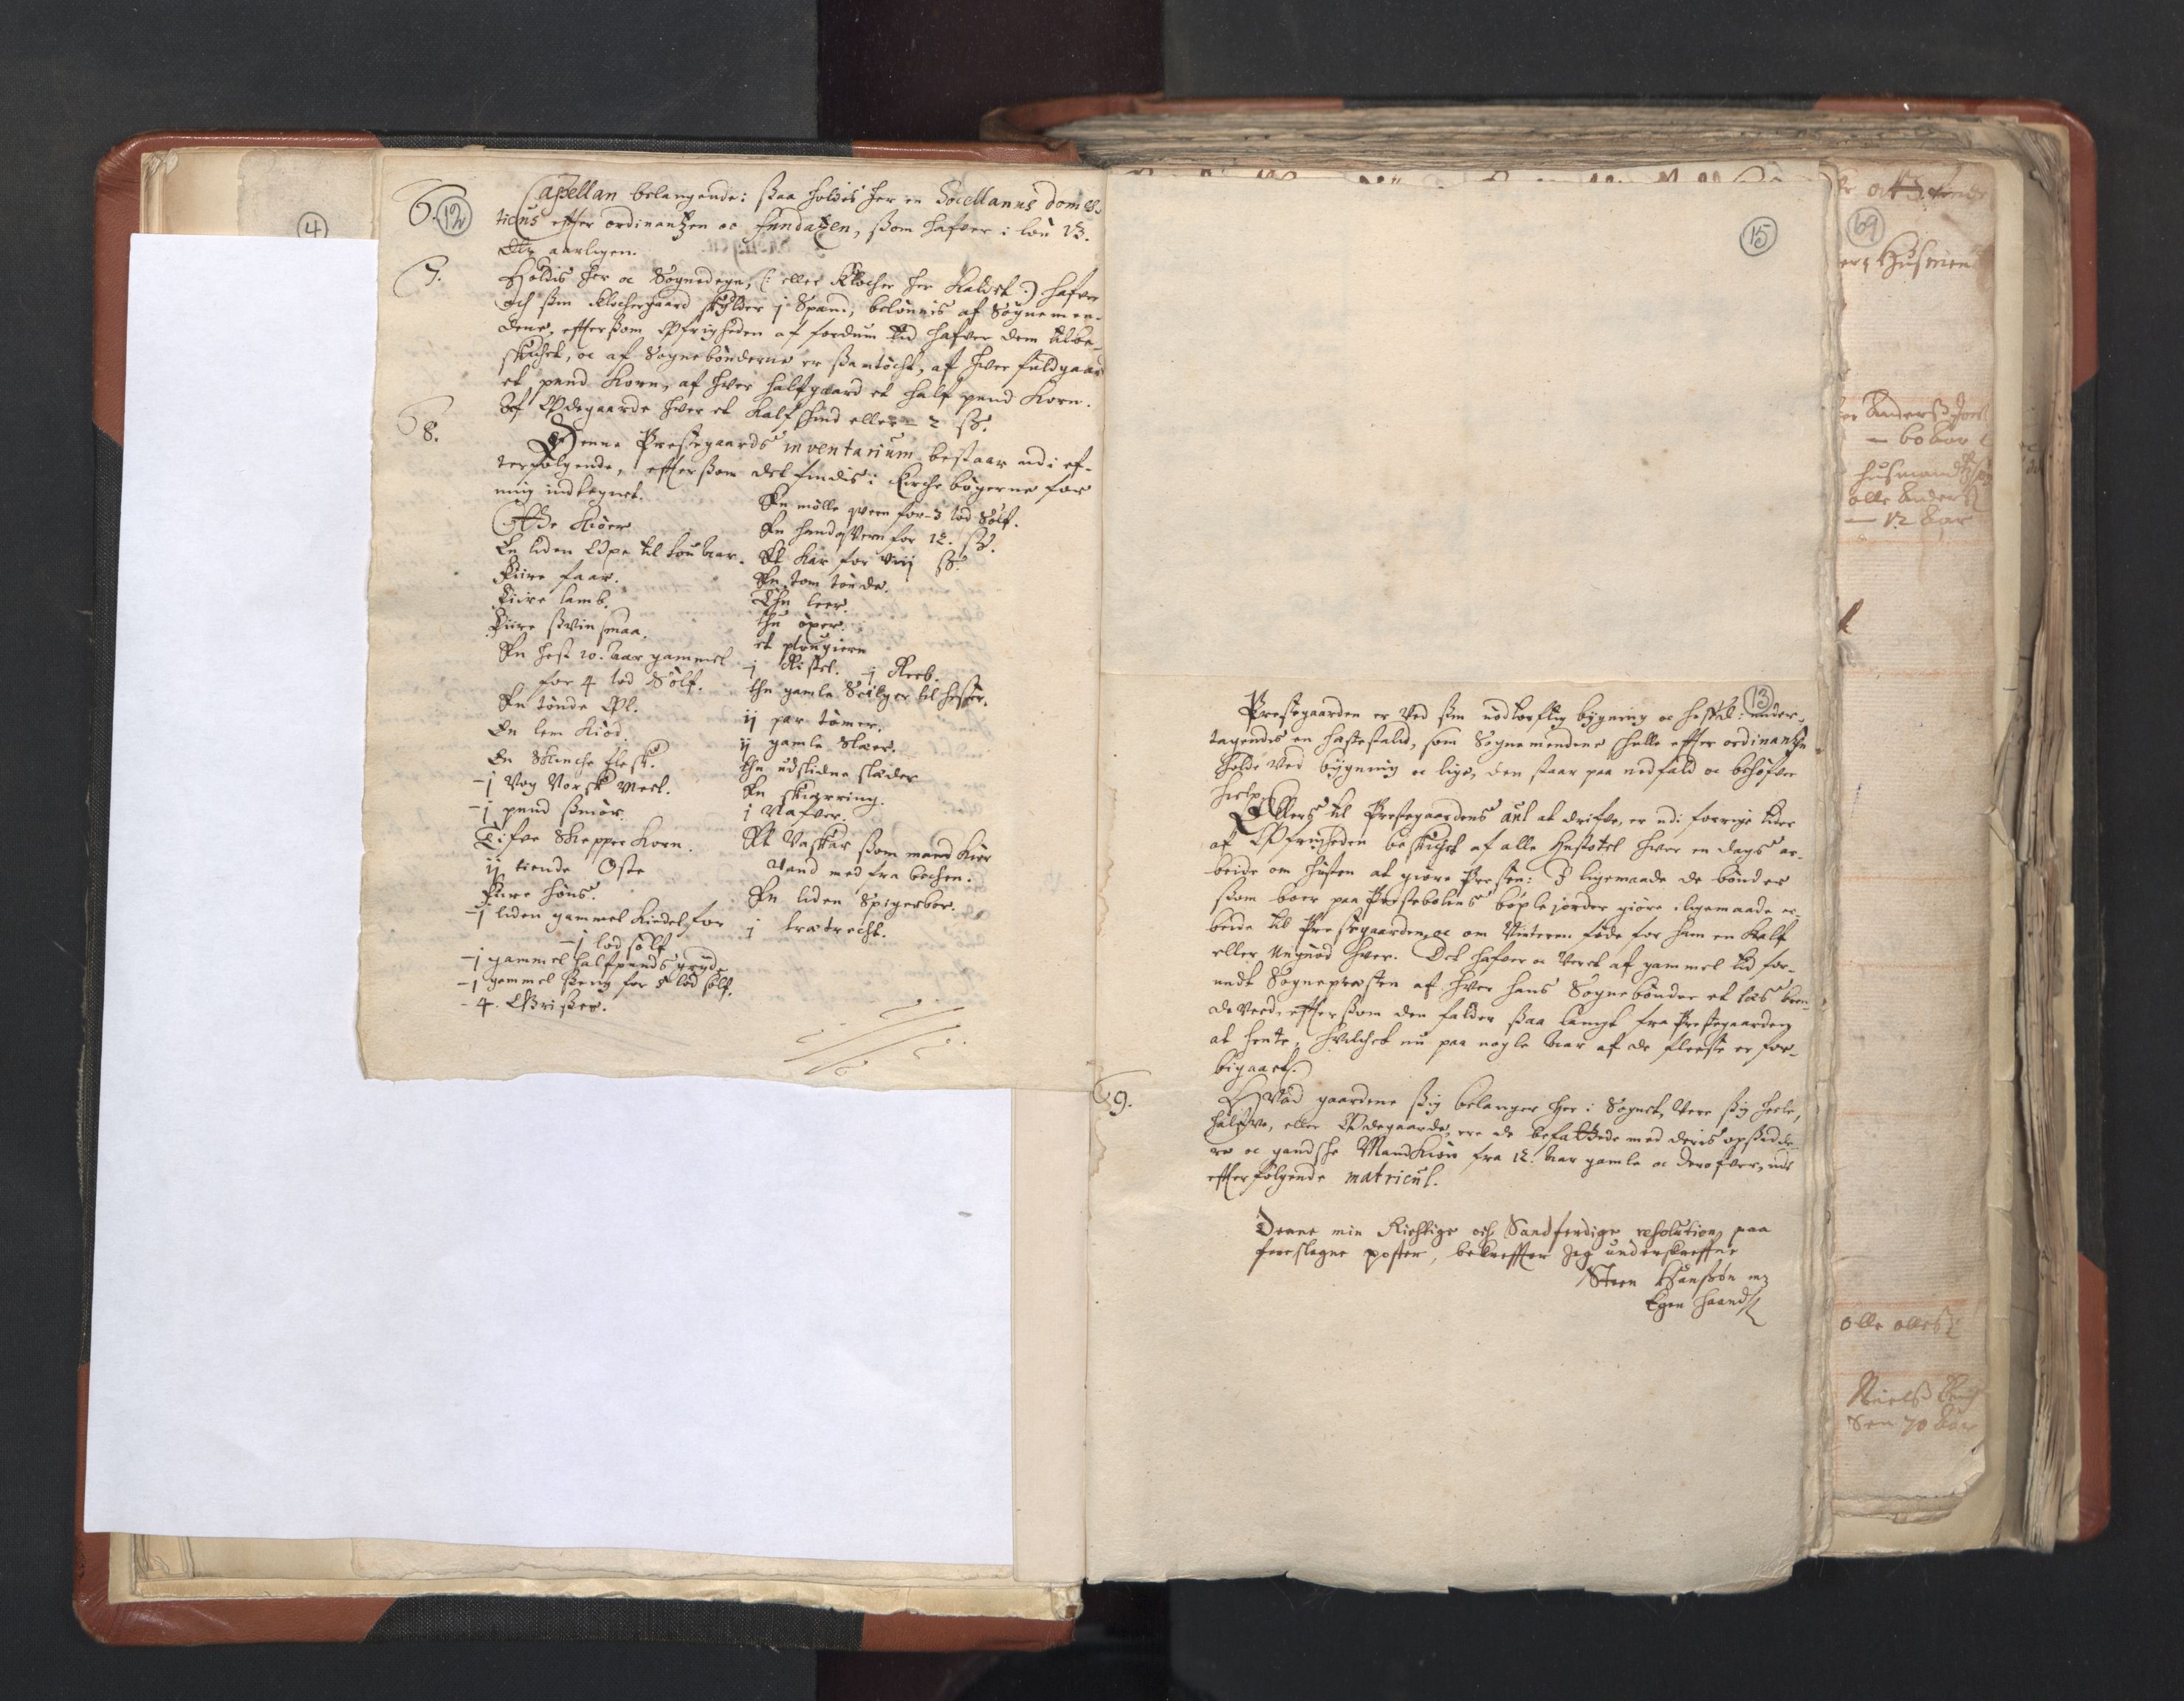 4
12
6. Capellan belangende: ßaa holdis her en Sacellanus domes-
ticus effter ordinantzen oc fundatzen, ßom hafver i lön 12.
dlr aarligen.
7. Holdis her oc Sognedegn, (: eller Klocher her kaldet :) hafver
och sin klochergaard skylder j Spand, belönnis af Sognemen-
dene, effterßom Øfrigheden af fordum tid hafver dem tilbe-
skichet, oc af Sognebönderne er ßamtöcht, af hver fuldgaard
et pund Korn, af hver halfgaard et half pund Korn.
Af Ødegaarde hver et kalfskind eller 2 ß.
8. Denne Prestegaards inventarium bestaar udi ef-
terfølgende, effterßom det findis i Kirche bögerne for
mig indtegnet.
Otte Kiöer
En liden til tou aar.
Fiire faar.
Fiire lamb.
Fiire ßvin smaa.
En hest 10. aar gammel
for 4 lod Sölf.
En tönde Øl.
En lem Kiöd.
En Skinche flesk.
- j Vog Norsk meel.
- j pund ßmör.
Tifve Skepper Korn.
ij tiende Oste
Fiire höns.
- j liden gammel Kiedel for
- j lod sölf
- j gammel halfpunds gryde
- j gammel ßeng for 5 lod sölf.
- 4. Grißer.
En mölle qvern for 3 lod Sölf.
En handqvern for 12. ß.
Et Kar for viij ß.
En tom tönde.
Thu leer.
thu öxer.
et plougiern
j Ristel. j Reeb.
thu gamle Seilger til hester.
ij par tömer.
ij gamle
thu udslidne slæder
En skiærring.
j Nafver.
Et Vaskar ßom mand kiör
Vand med fra bechen.
En liden Spigerbor.
j trætrecht.
15
13
Prestegaarden er ved sin nödtorftig bygning oc heffd: under-
tagendis en hestestald, som Sognemendene skulle effter ordinantzen
holde ved bygning oc lige, den staar paa nedfald oc behöfver
hielp.
Ellers til Prestegaardens aul at drifve, er udi forrige tider
af Øfrigheden beskichet af alle hver en dags ar-
beide om hösten at giöre Presten: I ligemaade de bönder
ßom boer paa Prestebolens böxle jorder giöre iligemaade ar-
beide til Prestegaarden, oc om Vinteren föde for ham en Kalf
eller ungnöd hver. Det hafver oc veret af gammel tid for-
undt Sognepresten af hver hans Sognebönder et las bren-
deveed, effterßom den falder ßaa langt fra Prestegaarden
at hente, hvilchet nu paa nogle aar af de fleeste er for-
bigaaet.
9. Hvad gaardene ßig belanger her i Sognet, Vere ßig heele,
halfve, eller Ødegaarde, ere de befattede med deris opßidde-
re oc gandske Mandkiön fra 12. aar gamle oc derofver, udi
effterfölgende matricul.
Denne min Richtige och Sandferdige resolution paa
foreslagne poster, bekreffter Jeg underskreffne
Steen Hansßön mz
Egen haand
69
Husmen
60 aar
husmand
olle Anders
12 aar
olle olles
Niels
70 aar